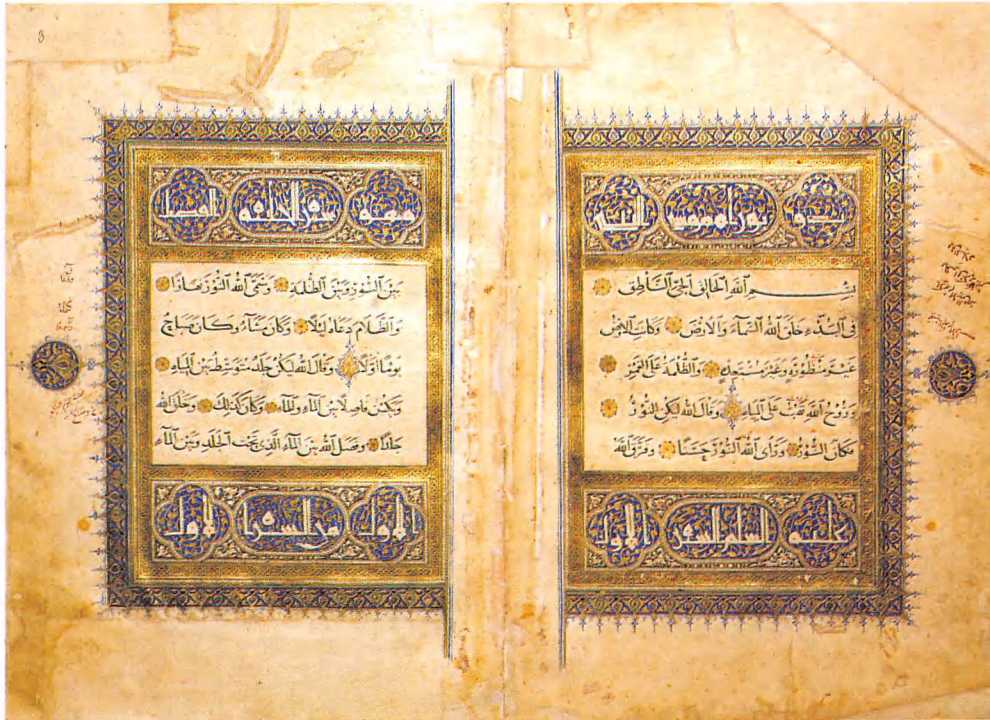 النبي
عليه السلام السفر الاول
بسم الله الخالق الحي الناطق
في البدء خلق الله السماء والارض وكانت الارض
غير منظورة وغير مستعدة والظلمة على الغمر
وروح الله تهب على المياه وقال الله ليكن النور
فكان النور وراى الله النور حسنا وفرق الله
سفر الخليقة الفصل
الاول من السفر الاول
بين النور وبين الظلمة وسمى الله النور نهارا
والظلام دعاه ليلا وكان مساء وكان صباح
يوما اولا وقال الله ليكن جلد متوسط بين المياه
ويكن فاصلا بين الماء والماء وكان كذلك وخلق الله
جلدا وفصل الله بين الماء الذي تحت الجلد وبين الماء